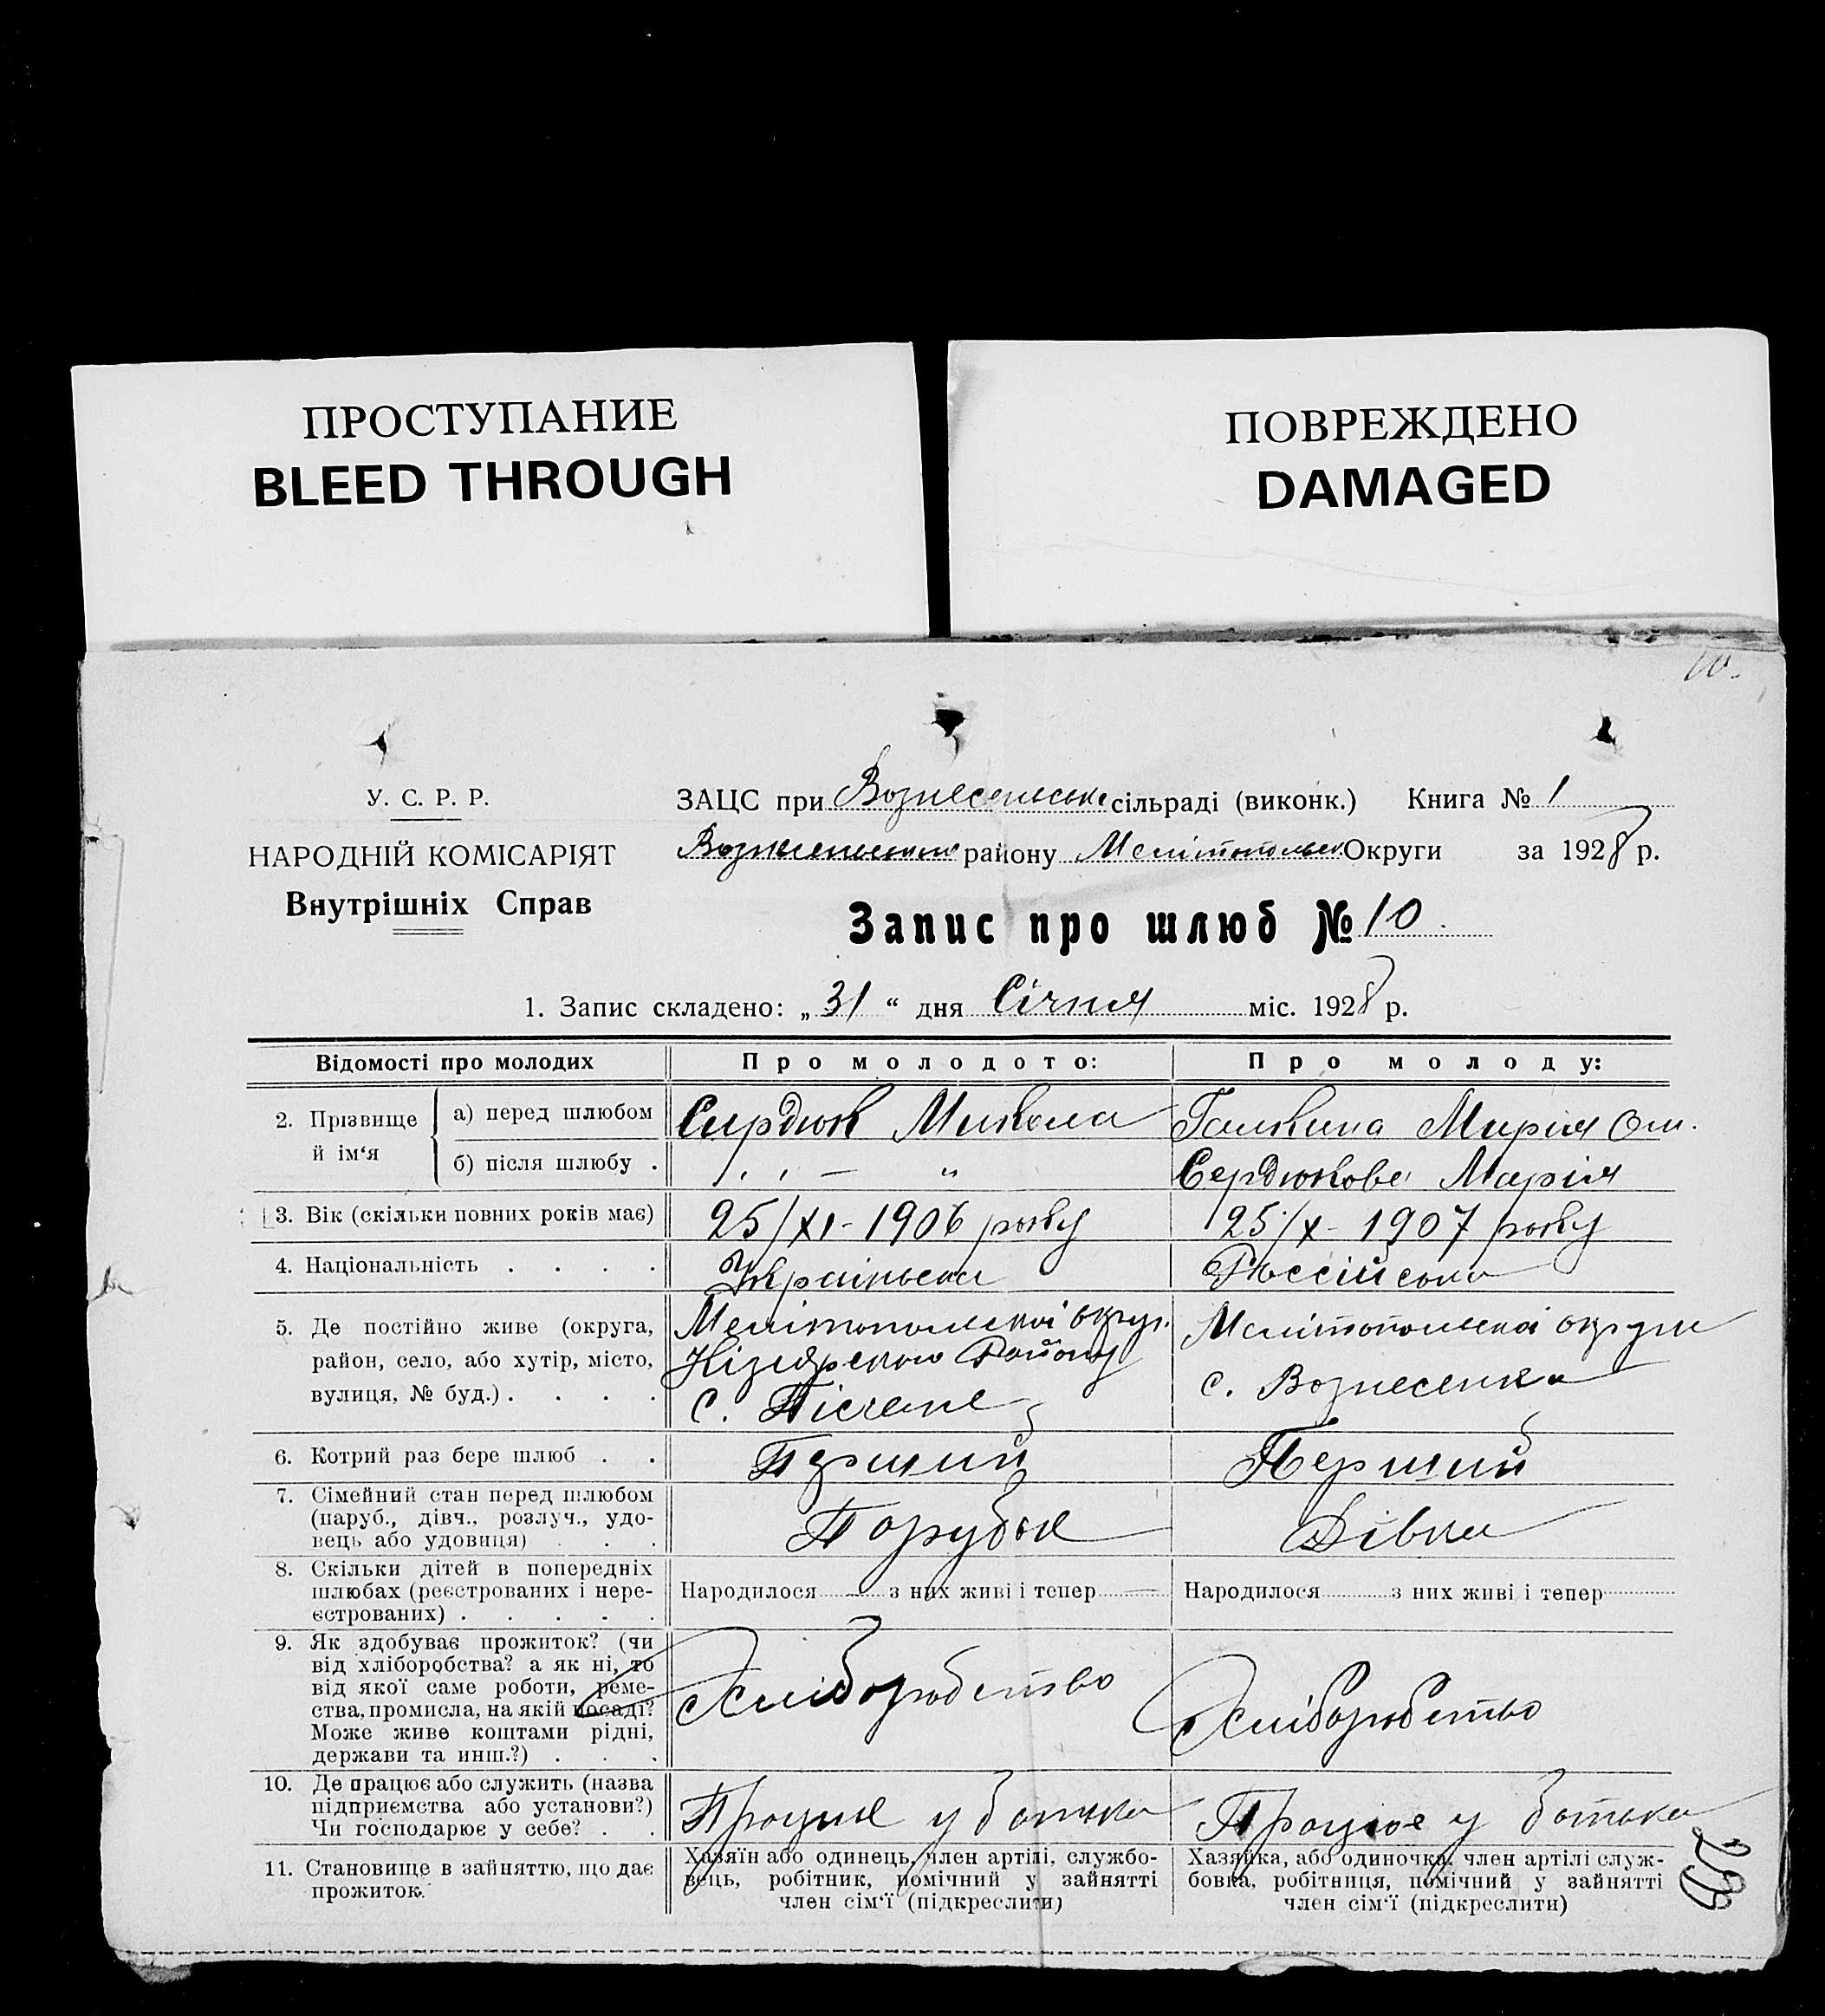 ПРОСТУПАНИЕ
BLEED THROUGH
ПОВРЕЖДЕНО
DAMAGED
10.
У. С. Р. Р.
НАРОДНІЙ КОМІСАРІЯТ
Внутрішніх Справ
ЗАЦС при Вознесенське сільраді (виконк.) Книга № 1
району Мелітопольсь Округи за 1928 р.
Запис про шлюб № 10.
1. Запис складено: „ 31 “ дня Січня міс. 1928 р.
Відомості про молодих
Про молодого:
Про молоду:
2. Прізвище й ім‘я
а) перед шлюбом
Сирдюк Микола
Галкина Марія
б) після шлюбу .
, , — „
Сердюкова Марія
3. Вік (скільки повних років має)
25/XI - 1906 року
25/X - 1907 року
4. Національність . . . .
Українська
Россійська
5. Де постійно живе (округа,
район, село, або хутір, місто,
вулиця, № буд.) . . . .
Мелітопольскої округ.
Кізіярського Району
с. Пісчане
Мелітопольскої округи
с. Вознесенка
6. Котрий раз бере шлюб . .
Перший
Перший
7. Сімейний стан перед шлюбом
(паруб., дівч., розлуч., удо-
вець або удовиця) . . .
Парубок
Дівка
8. Скільки дітей в попередніх
шлюбах (реєстрованих і нере-
єстрованих) . . . . .
Народилося — з них живі і тепер —
Народилося з них живі і тепер
9. Як здобуває прожиток? (чи
від хліборобства? а як ні, то
від якої саме роботи, реме-
ства, промисла, на якій посаді?
Може живе коштами рідні,
держави та инш.?) . . .
Хліборобство
Хліборобство
10. Де працює або служить (назва
підприємства або установи?)
Чи господарює у себе? . .
Працює у батька
Працює у батька
11. Становище в зайняттю, що дає
прожиток.
Хазяїн або одинець, член артілі, службо-
вець, робітник, помічний у зайнятті
член сім‘ї (підкреслити)
Хазяйка, або одиночка, член артілі служ-
бовка, робітниця, помічний у зайнятті
член сім‘ї (підкреслити)